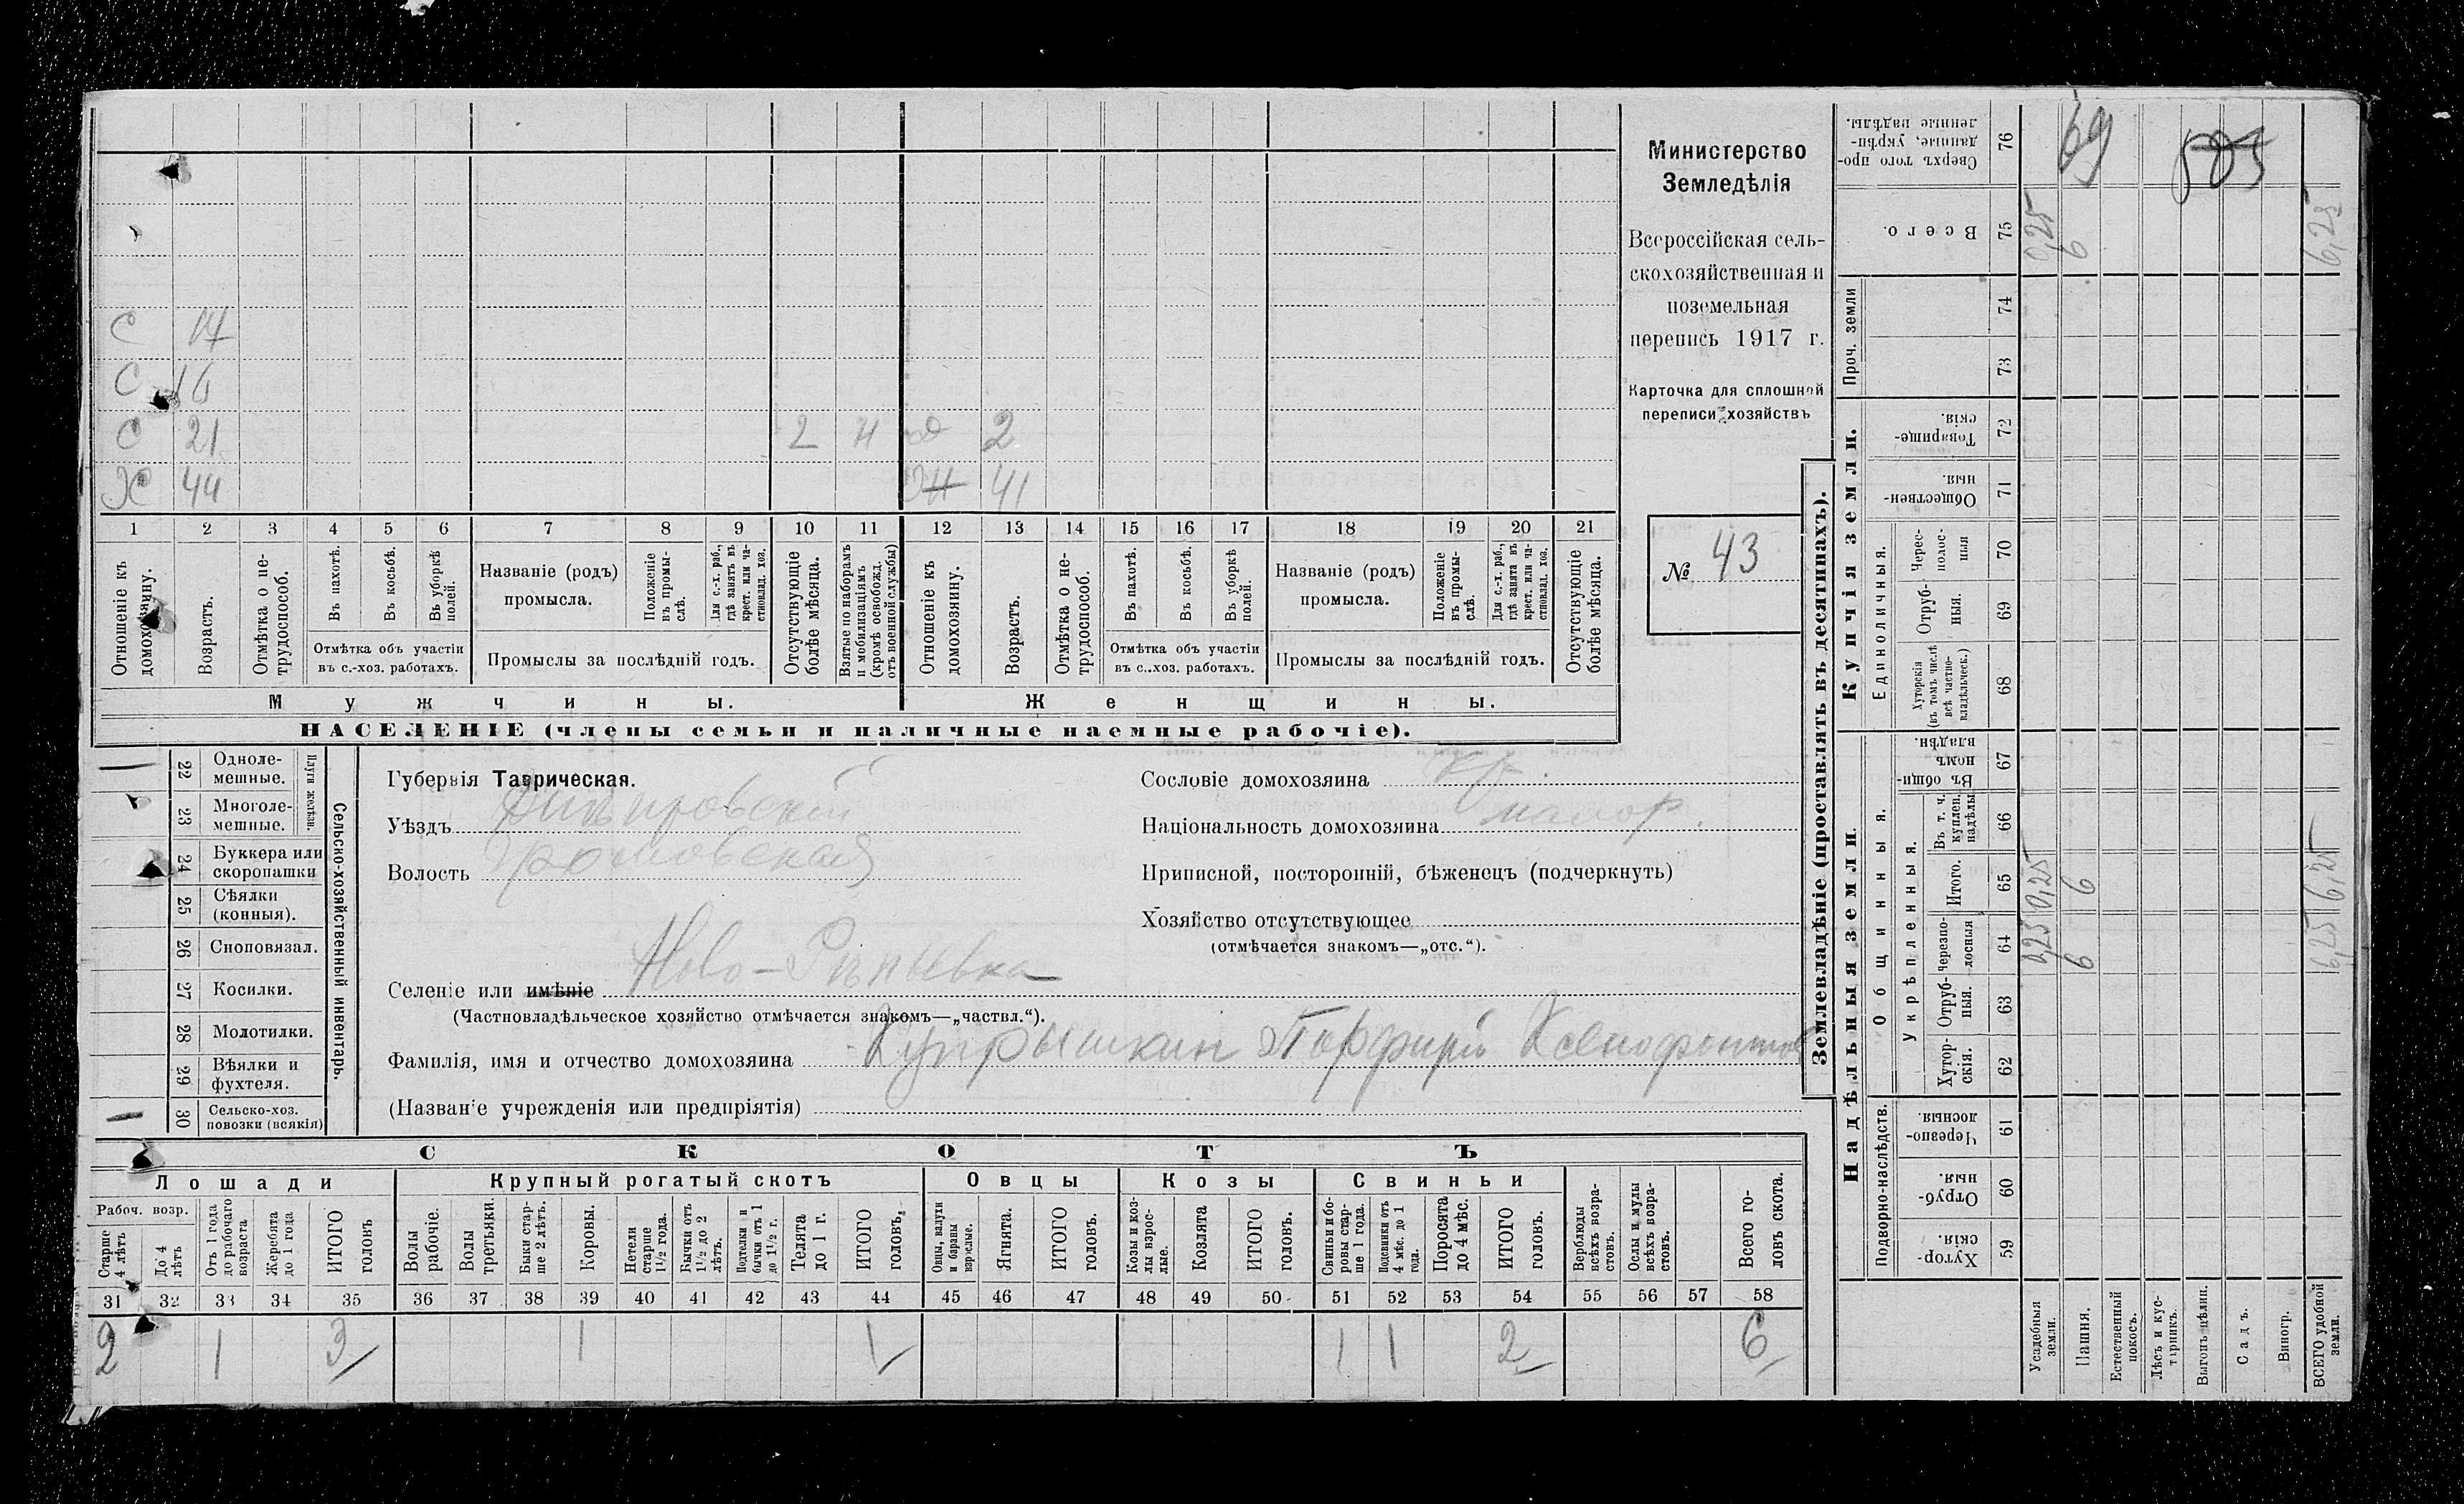 С 14
С 16
С 21 2 Н д 2
Х 44 Ж 41
1 2 3 4 5 6 7 8 9 10 11 12 13 14 15 16 17 18 19 20 21
Отношеніе къ домохозяину.
Возрастъ.
Отмѣтка о не-
трудоспособ.
Въ пахотѣ.
Въ косьбѣ.
Въ уборкѣ полей.
Отмѣтка объ участіи
въ с.-хоз. работахъ.
Названіе (родъ)
промысла.
Положеніе въ промы-
слѣ.
Для с.-х. раб., гдѣ занятъ въ крест. или ча-
стновлад. хоз.
Промыслы за послѣдній годъ.
Отсутствующіе болѣе мѣсяца.
Взятые по наборамъ и мобилизаціямъ (кромѣ освобожд. отъ военной службы)
Отношеніе къ домохозяину.
Возрастъ.
Отмѣтка о не-
трудоспособ.
Въ пахотѣ.
Въ косьбѣ.
Въ уборкѣ полей.
Отмѣтка объ участіи
въ с.-хоз. работахъ.
Названіе (родъ)
промысла.
Положеніе въ промы-
слѣ.
Для с.-х. раб., гдѣ занята въ крест. или ча-
стновлад. хоз.
Промыслы за послѣдній годъ.
Отсутствующіе болѣе мѣсяца.
Мужчины. Женщины.
НАСЕЛЕНІЕ (члены семьи и наличные наемные рабочіе).
Министерство
Земледѣлія
Всероссійская сель-
скохозяйственная и
поземельная
перепись 1917 г.
Карточка для сплошной
переписи хозяйствъ
№ 43
22 Одноле-
мешные.
23 Многоле-
мешные.
Плуги желѣзн.
24 Буккера или
скоропашки
25 Сѣялки
(конныя).
26 Сноповязал.
27 Косилки.
28 Молотилки.
29 Вѣялки и
фухтеля.
30 Сельско-хоз.
повозки (всякія)
Сельско-хозяйственный инвентарь.
Губернія Таврическая.
Уѣздъ Днѣпровскій
Волость Громовская
Селеніе или имѣніе Ново-Рѣпьевка
(Частновладѣльческое хозяйство отмѣчается знакомъ—„частвл.“).
Фамилія, имя и отчество домохозяина Купрышкин Порфирій Ксенофонтов
(Названіе учрежденія или предпріятія)
Сословіе домохозяина кр.
Національность домохозяина малор.
Приписной, посторонній, бѣженецъ (подчеркнуть)
Хозяйство отсутствующее
(отмѣчается знакомъ—„отс.“).
СКОТЪ
Лошади Крупный рогатый скотъ Овцы Козы Свиньи
Рабоч. возр.
Старше 4 лѣтъ
До 4 лѣтъ
Отъ 1 года до рабочаго возраста
Жеребята до 1 года
ИТОГО головъ
Волы рабочіе.
Волы третьяки.
Быки стар-
ше 2 лѣтъ.
Коровы.
Нетели старше 1½ года.
Бычки отъ 1½ до 2 лѣтъ.
Подтелки и бычки отъ 1 до 1½ г.
Телята до 1 г.
ИТОГО головъ.
Овцы, валухи и бараны взрослые.
Ягнята.
ИТОГО головъ.
Козы и коз-
лы взрос-
лые.
Козлята
ИТОГО головъ.
Свиньи и бо-
ровы стар-
ше 1 года.
Подсвинки отъ 4 мѣс. до 1 года.
Поросята до 4 мѣс.
ИТОГО головъ.
Верблюды всѣхъ возра-
стовъ.
Ослы и мулы всѣхъ возра-
стовъ.
Всего го-
ловъ скота.
31 32 33 34 35 36 37 38 39 40 41 42 43 44 45 46 47 48 49 50 51 52 53 54 55 56 57 58
2 1 3 1 1 1 1 2 6
Землевладѣніе (проставлять въ десятинахъ).
Купчія земли.
Надѣльныя земли.
Сверхъ того про-
данные, укрѣп-
ленные надѣлы. 76 69 505
Всего. 75 0,25 6 6,25
Проч. земли
74
73
Товарище-
скія. 72
Обществен-
ныя. 71
Единоличныя.
Черес-
полос-
ныя 70
Отруб-
ныя. 69
Хуторскія (въ томъ числѣ всѣ частно-
владѣльческ.) 68
Общинныя.
Въ общи-
номъ
владѣн. 67
Укрѣпленныя.
Въ т. ч. куплен. надѣлы 66
Итого. 65 0,25 6 6,25
Черезпо-
лосныя 64 0,25 6 6,25
Отруб-
ныя. 63
Хутор-
скія. 62
Подворно-наслѣдств.
Черезпо-
лосныя 61
Отруб-
ныя. 60
Хутор-
скія. 59
Усадебныя земли.
Пашня.
Естественный покосъ.
Лѣсъ и кус-
тарникъ.
Выгонъ цѣлин.
Садъ.
Виногр.
ВСЕГО удобной земли.